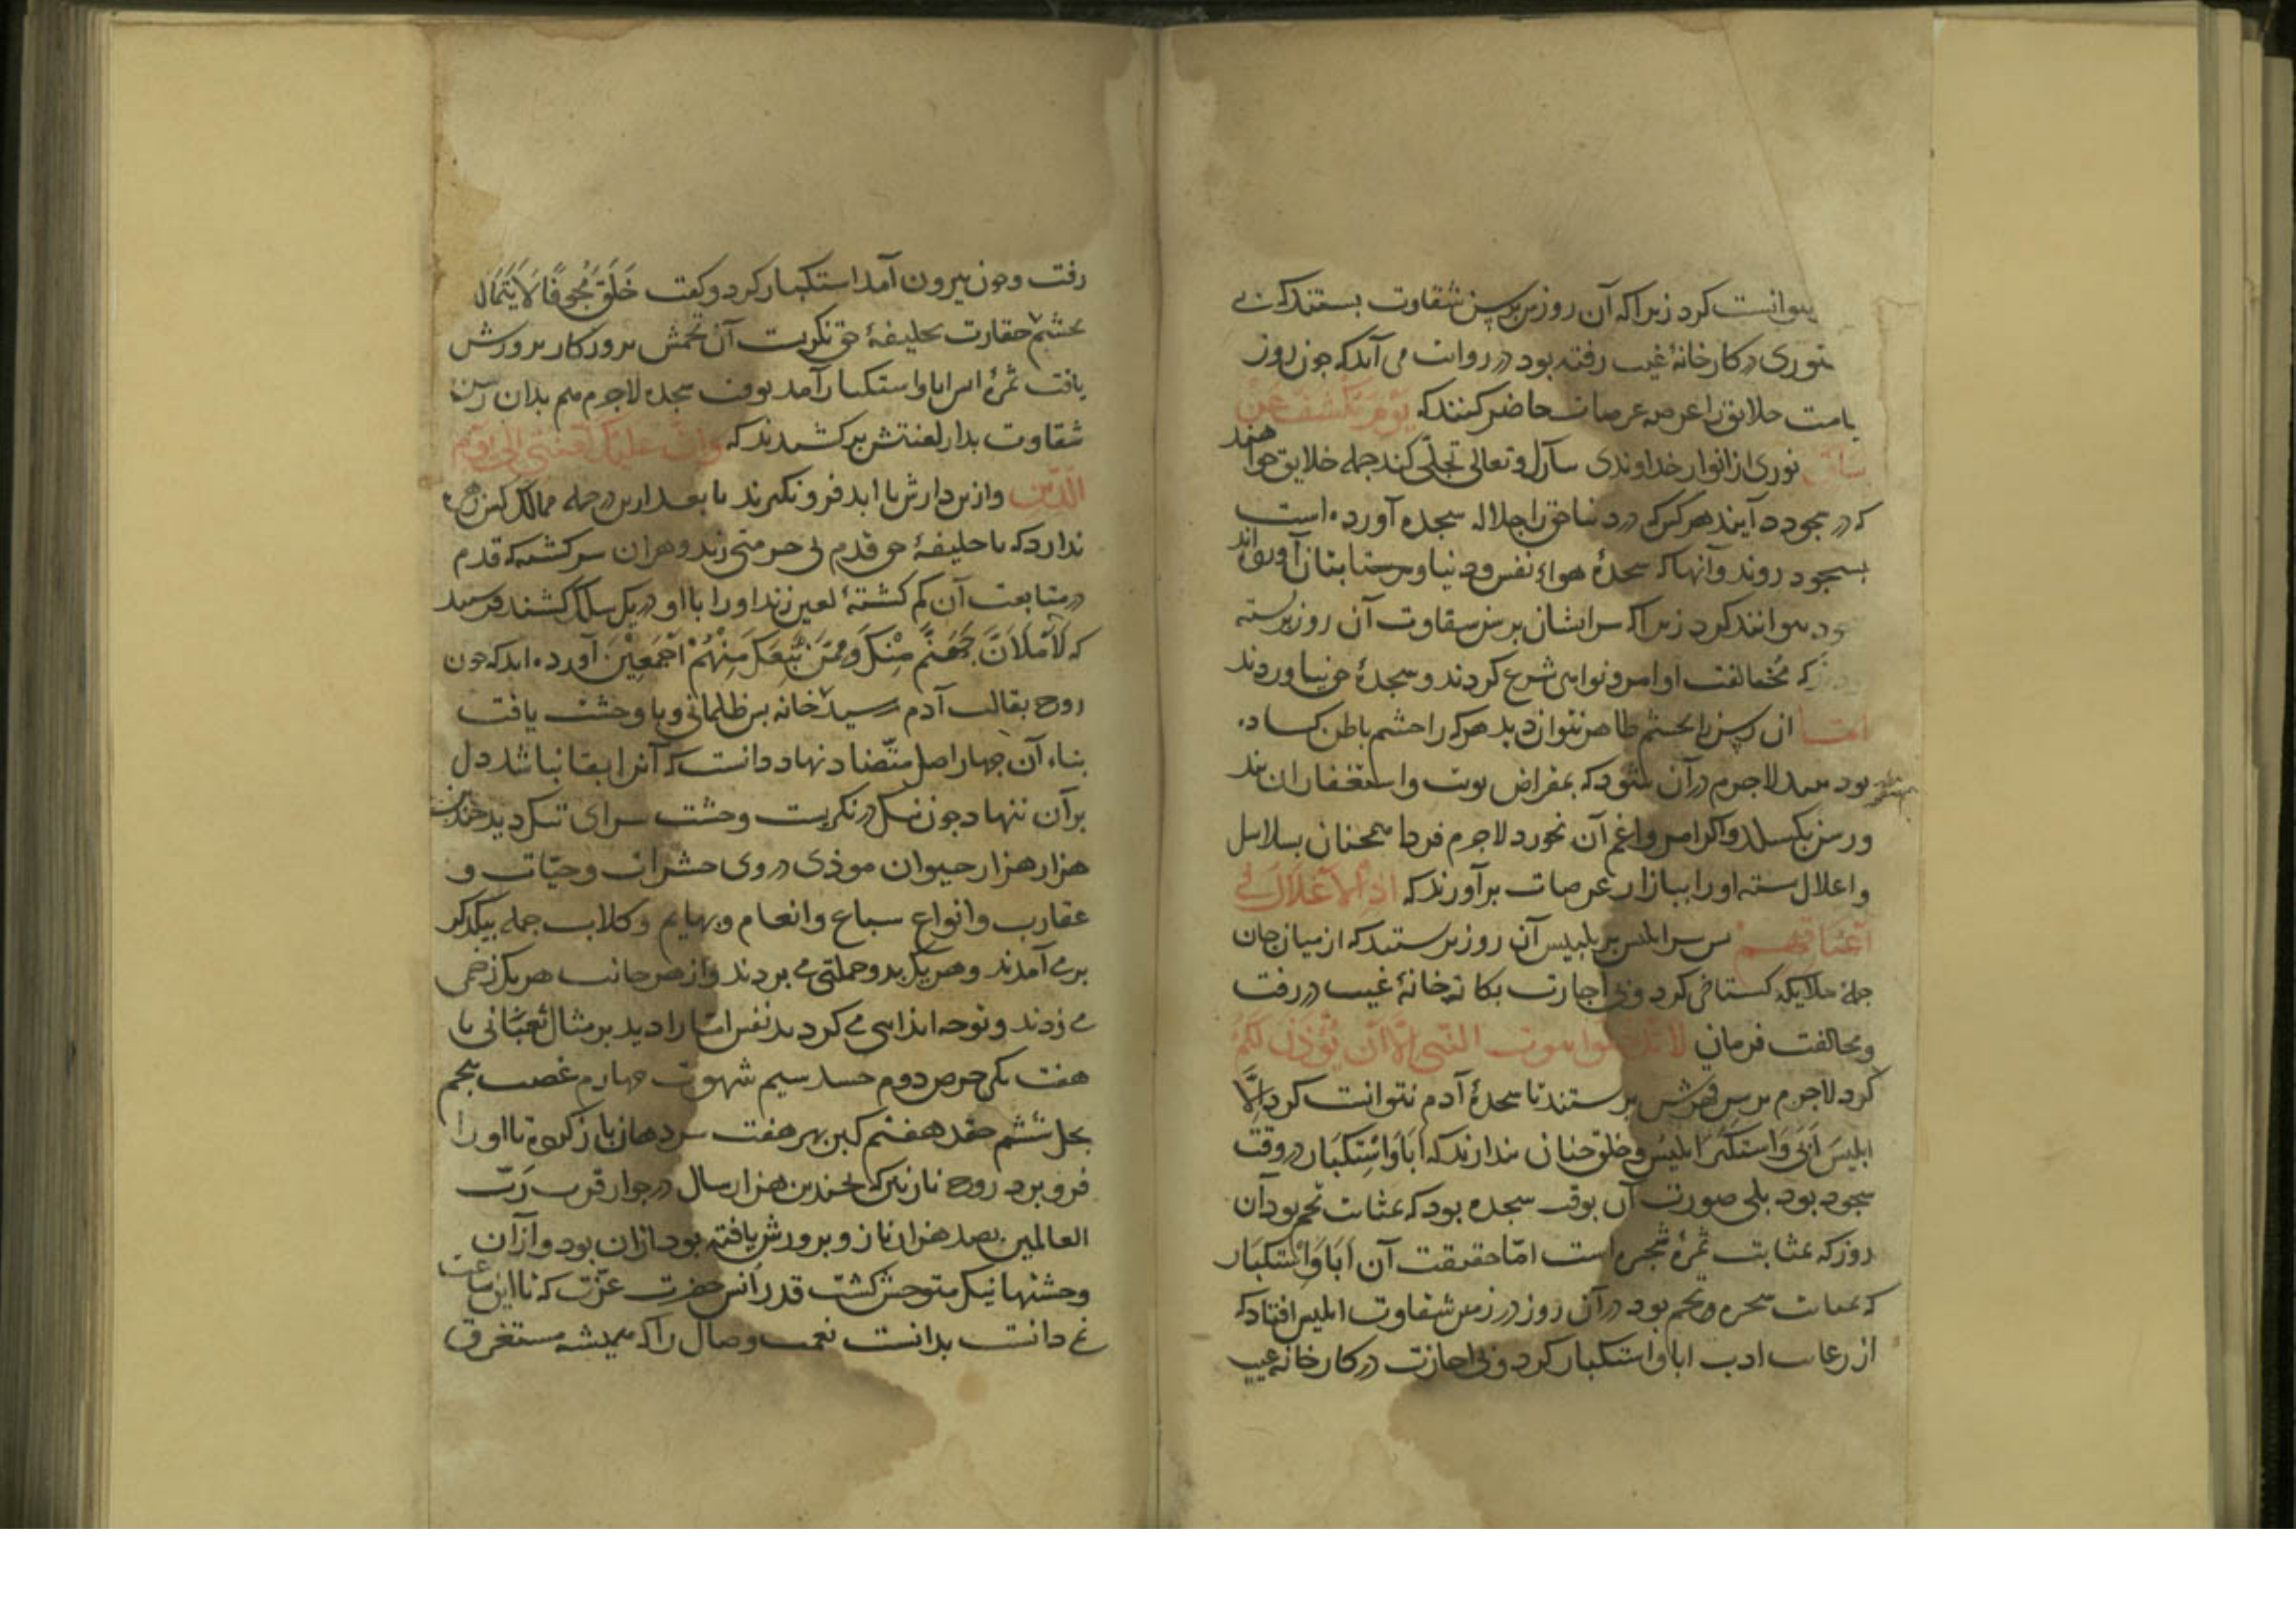 نتوانست کرد زیرا که آن روزش برسن شقاوت بستند که بی
دستوری در کارخانهٔ غیب رفته بود در روایت می آید که چون روز
قیامت خلایق را بعرصه عرصات حاضر کنند که یَوْمَ یُکْشَفُ عَنْ
سَاقٍ نوری از انوار خداوندی تبارک و تعالی تجلی کند جمله خلایق خواهند
که در سجود آیند هر کس که در دنیا حق را جلاله سجده آورده است
بسجود روند و آنها که سجدهٔ هوای نفس و دنیا و بتان آورده اند
سجود نتوانند کرد زیرا که سر ایشان برسن شقاوت آن روز بر بسته
که مخالفت اوامر و نواهی شرع کردند و سجدهٔ حق نیاوردند
امّا این رسن را بچشم ظاهر نتوان دید هر که را چشم باطن گشاده
بود بیند لاجرم در آن شود که بمقراض توبت و استغفار آن بند
و رسن بگسلد و اگر امروز غم آن نخورد لاجرم فردا همچنان بسلاسل
و اغلال بسته او را ببازار عرصات برآورند که اِذِ الاَغْلاَلُ فِی
اَعْنَاقِهِمْ پس سر ابلیس پر تلبیس آن روز بر بستند که از میان جان
جمله ملایکه گستاخی کرد و بی اجازت بکارخانهٔ غیب در رفت
و مخالفت فرمان لا تَدْخُلُوا بیوت النّبی اِلّا اَنْ یُؤْذَنَ لَکُمْ
کرد لاجرم برسن قهرش بر بستند تا سجدهٔ آدم نتوانست کرد اِلَّا
ابلیسَ اَبَی وَاسْتَکْبَرَ ابلیس و خلق چنان پندارند که اَبَا وَاسْتِکْبَار در وقت
سجود بود بلی صورت آن بوقت سجده بود که بمثابت تخم بود آن
روز که بمثابت ثمرهٔ شجره است امّا حقیقت آن اَبَا وَاِسْتِکْبَار
که بمثابت شجره و تخم بود در آن روز در زمین شقاوت ابلیس افتاد که
از رعایت ادب ابا و استکبار کرد و بی اجازت در کارخانه غیب
رفت و چون بیرون آمد استکبار کرد و گفت خَلَقَ مُجَوَّفًا لَا یَتَمَالَ
بچشم حقارت بخلیفهٔ حق نگریست آن تخمش بروزگار پرورش
یافت ثمرهٔ اش ابا و استکبار آمد بوقت سجده لاجرم هم بدان رسن
شقاوت بدار لعنتش برکشیدند که وَاِنَّ عَلَیْکَ لَعْنَتِی اِلَی یَوْمِ
الدِّین و ازین دارش تا ابد فرو نگیرند تا بعد ازین در جمله ممالک کس زهره
ندارد که با خلیفهٔ حق قدم بی حرمتی زند و هر آن سرگشته که قدم
در متابعت آن گم گشتهٔ لعین زند او را با او در یک سلک کشند
که لَاَمْلَاَنَّ جَهَنَّمَ مِنْکَ وَمِمَّنْ تَبِعَکَ مِنْهُمْ اَجْمَعِیْنَ آورده اند که چون
روح بقالب آدم رسید خانه بس ظلمانی و با وحشت یافت
بناء آن چهار اصل متضاد نهاد دانست که آنرا بقا نباشد دل
بر آن ننهاد چون نیک درنگریست وحشت سرای تنگ دید چندین
هزار هزار حیوان موذی در وی حشرات و حیّات و
عقارب و انواع سباع و انعام و بهایم و کلاب جمله بیکدیگر
برمی آمدند و هر یک بدو حملتی می بردند و از هر جانب هر یک زخمی
می زدند و بوجه ایذایی می کردند نفس امّاره را دید بر مثال ثعبانی با
هفت سر یکی حرص دوم حسد سیم شهوت چهارم غضب پنجم
بخل ششم حقد هفتم کبر بهر هفت سر دهان باز کرده تا او را
فرو برد روح نازنین که چندین هزار سال در جوار قرب رَبّ
العالمین بصد هزار ناز و پرورش یافته بود از آن بود و از آن
وحشتها نیک متوحش گشت قدر اُنس حضرت عزّت که تا این ساعت
نمی دانست بدانست نعمت وصال را که همیشه مستغرق